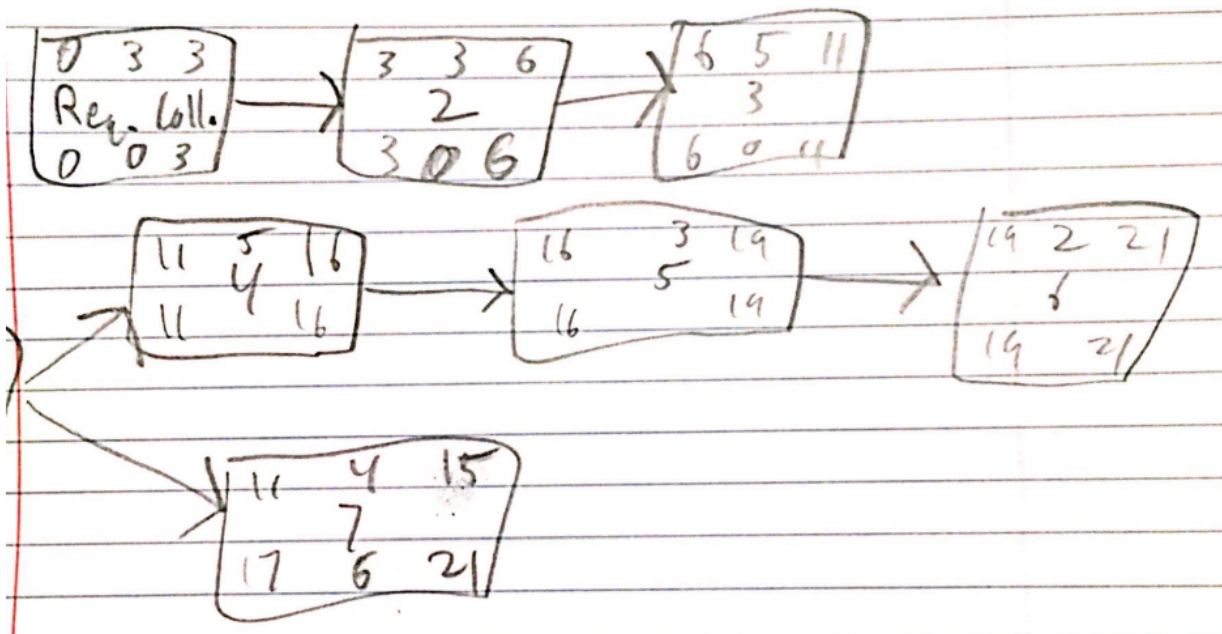 0 3 3
Req. Coll.
0 0 3
3 3 6
2
3 0 6
6 5 11
3
6 0 11
11 5 16
4
11 16
16 3 19
5
16 19
19 2 21
6
19 21
11 4 15
7
17 6 21